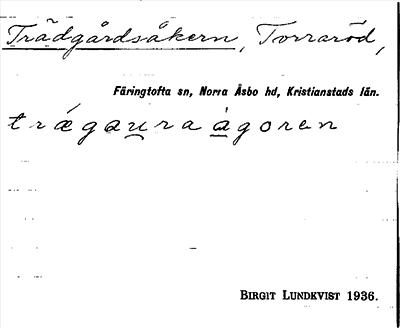 Trädgårdsåkern, Torraröd,
Färingtofta sn, Norra Åsbo hd, Kristianstads län.
trǽgau̲ra å̲goren
BIRGIT LUNDKVIST 1936.